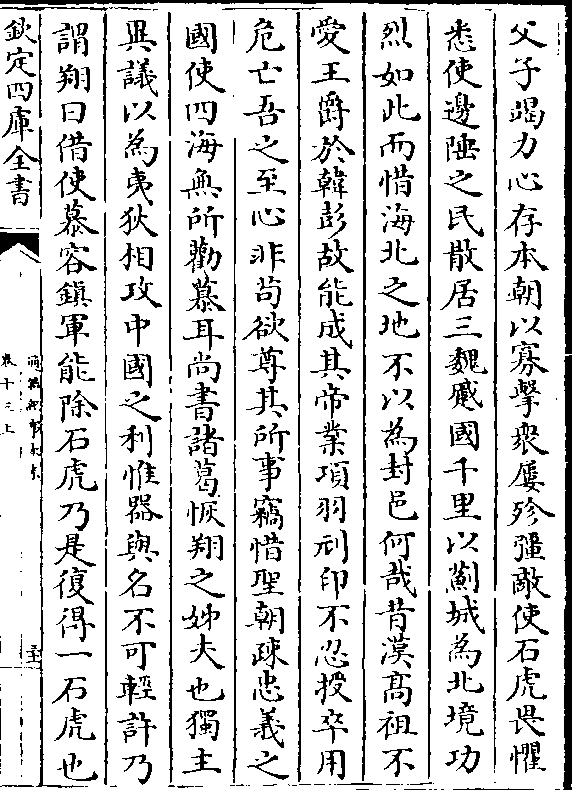 父子竭力心存本朝以寡擊衆屢殄彊敵使石虎畏懼
悉使邊陲之民散居三魏蹙國千里以薊城為北境功
烈如此而惜海北之地不以為封邑何哉昔漢高祖不
愛王爵於韓彭故能成其帝業項羽刓印不忍授卒用
危亡吾之至心非苟欲尊其所事竊惜聖朝疎忠義之
國使四海無所勸慕耳尚書諸葛恢翔之姊夫也獨主
異議以為夷狄相攻中國之利惟器與名不可輕許乃
謂翔曰借使慕容鎮軍能除石虎乃是復得一石虎也
欽定四庫全書
通鑑紀事本末
卷十三上